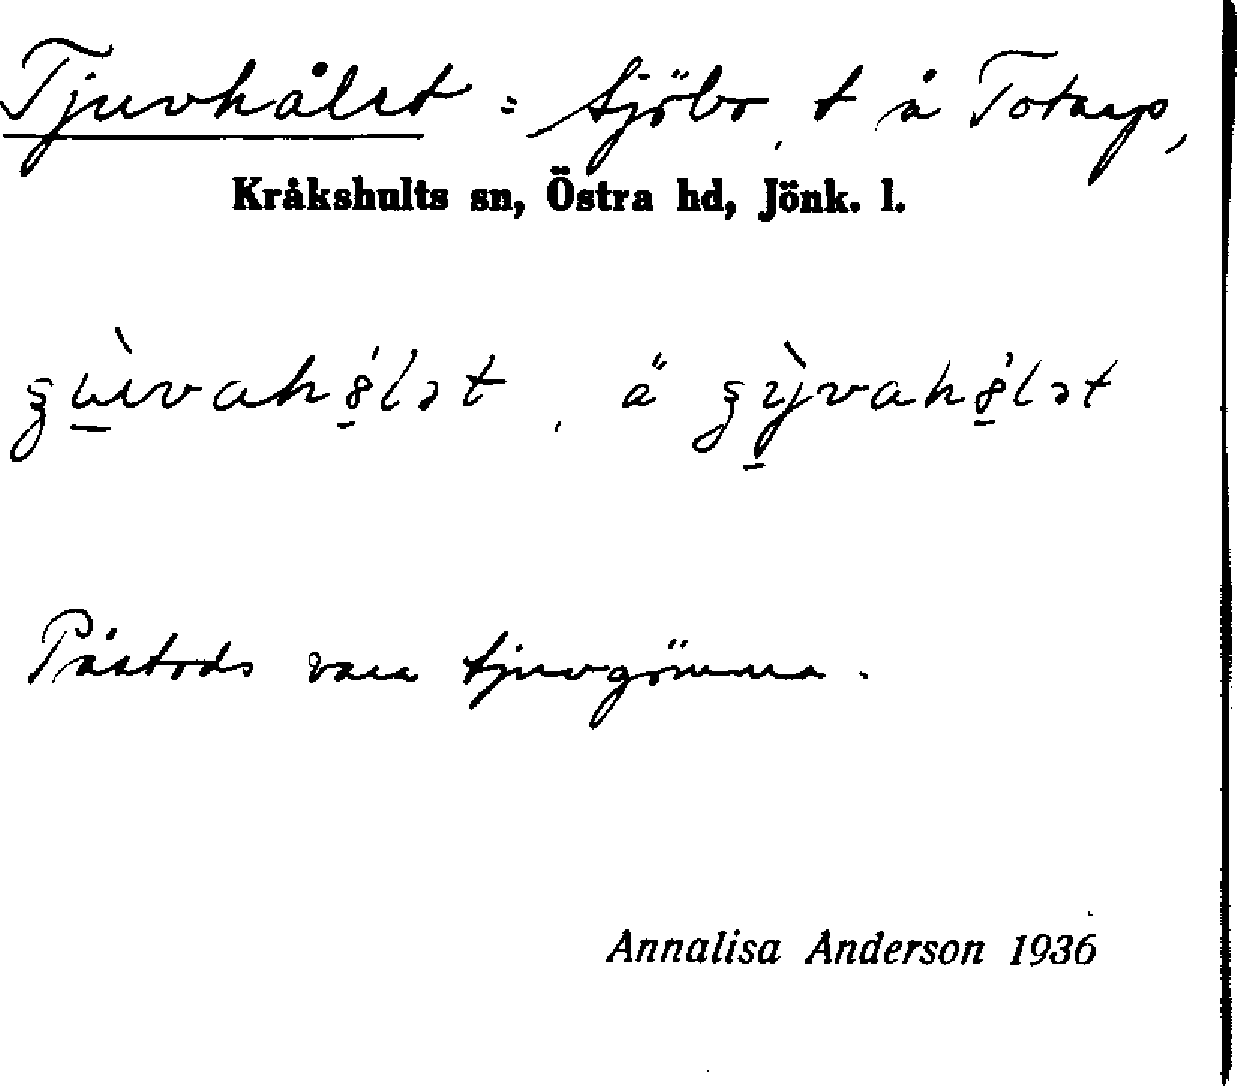 Tjuvhålet = Sjöbo, t å Totarp,
Kråkshults sn, Östra hd, Jönk. l.
ä
Påstods vara tjuvgömma.
Annalisa Anderson 1936